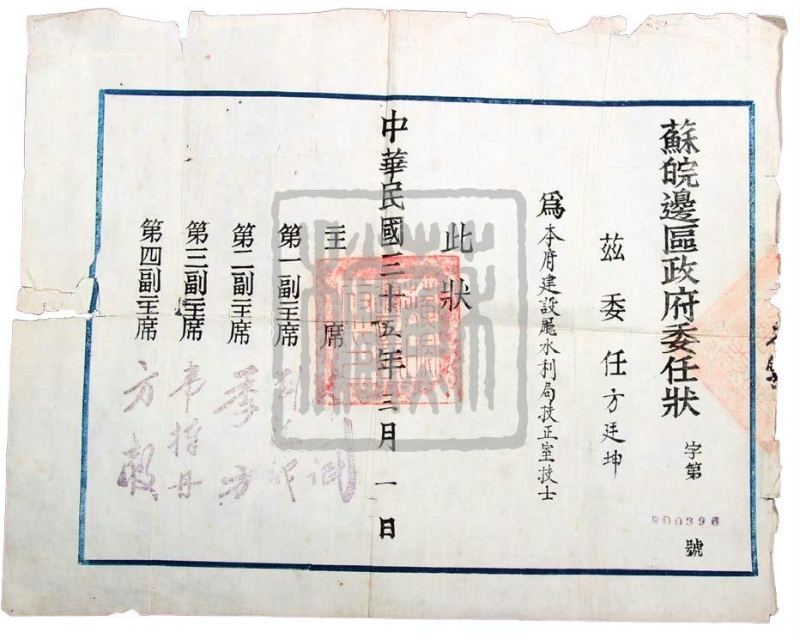 蘇皖邊區政府委任狀
字第
000396
號
茲委任方廷坤
爲本府建設廳水利局技正室技士
此狀
中華民國三十五年三月一日
主席
第一副主席
第二副主席 季方
第三副主席 韦悫丹
第四副主席 方毅